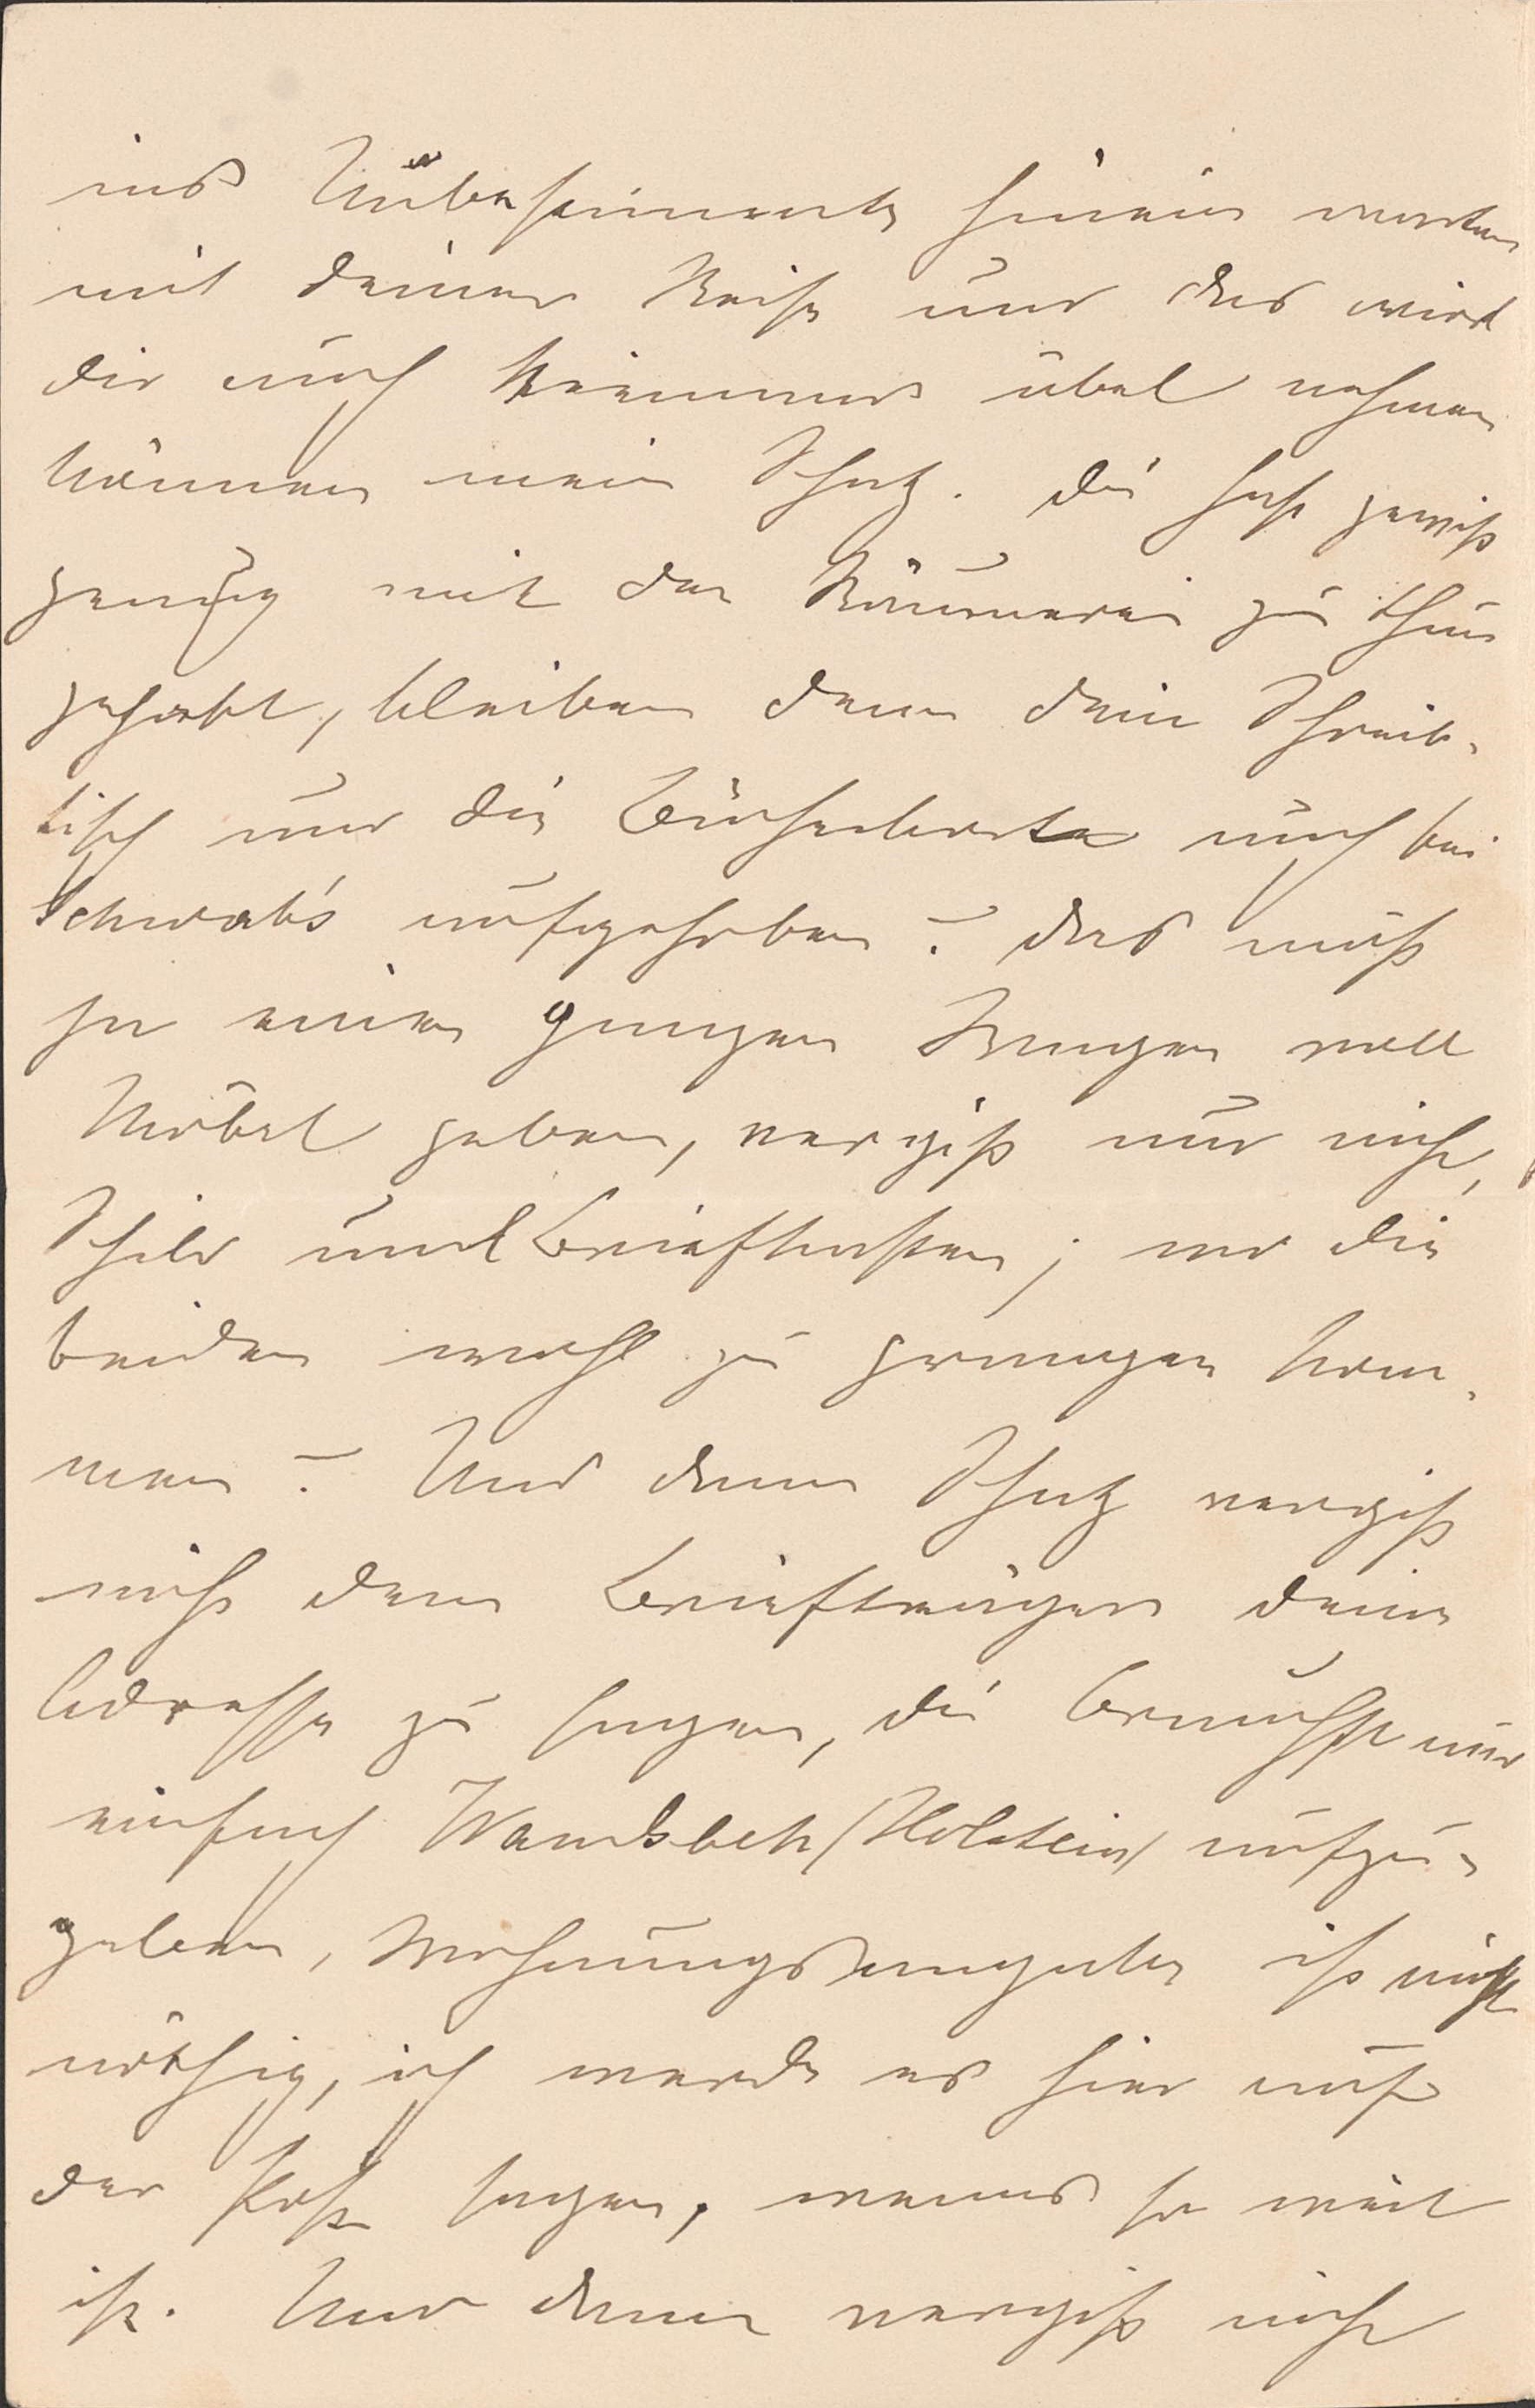 ins Unbestimmte hinein warten
mit deiner Reise und das wird
dir auch Niemand übel nehmen
können mein Schatz. du hast gewiß
genug mit der Räumerei zu thun
gehabt, bleiben denn dein Schreib-
tisch und die Bücherborte auch bei
Schwab's aufgehoben? das muß
ja einen ganzen Wagen voll
Möbel geben, vergiß nur nicht,
Schild und Briefkasten; wo die
beiden wohl zu prangen kom-
men? Und dann Schatz vergiß
nicht dem Briefträger deine
Adresse zu sagen, du brauchst nur
einfach Wandsbek/Holstein/ aufzu-
geben, Wohnungsangabe ist nicht
nöthig, ich werde es hier auf
der Post sagen, wenns so weit
ist. Und dann vergiß nicht